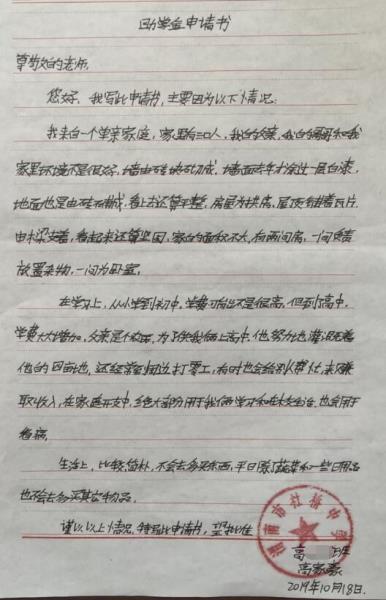 助学金申请书
尊敬的老师:
您好,我写此申请书,主要因为以下情况:
我来自一个单亲家庭,家里有三口人,我的父亲,我的
家里环境不是很好,墙由砖块砌成,墙面去年才涂过一层白漆,
地面也是由砖石铺成,看上去还算平整,房屋为瓦房,屋顶铺着瓦片,
由木梁支着,看起来还算坚固,家的面积不大,有两间房,一间负责
放置杂物,一间为卧室。
在学习上,从小学到初中,学费可能不是很高,但到了高中,
学费大大增加,父亲是个农民,为了供我俩上高中,他努力地灌溉着
他的田园地,还经常到周边打零工,有时也会给别人帮忙,来赚
取收入,在家庭开支中,绝大部分用于我俩的学习和在校生活,也会用于
看病。
生活上,比较简朴,不会去多买东西,平日除了蔬菜和一些日用品
也不会去多买其它物品。
谨以以上情况,特写此申请书,望批准
高 班
高家豪
2019年10月18日.